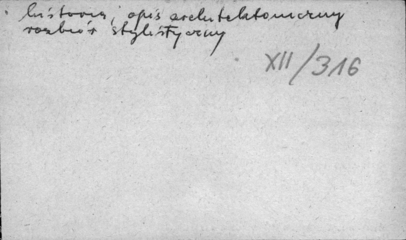 historia, opis architektoniczny
rozbiór stylistyczny
XII/316